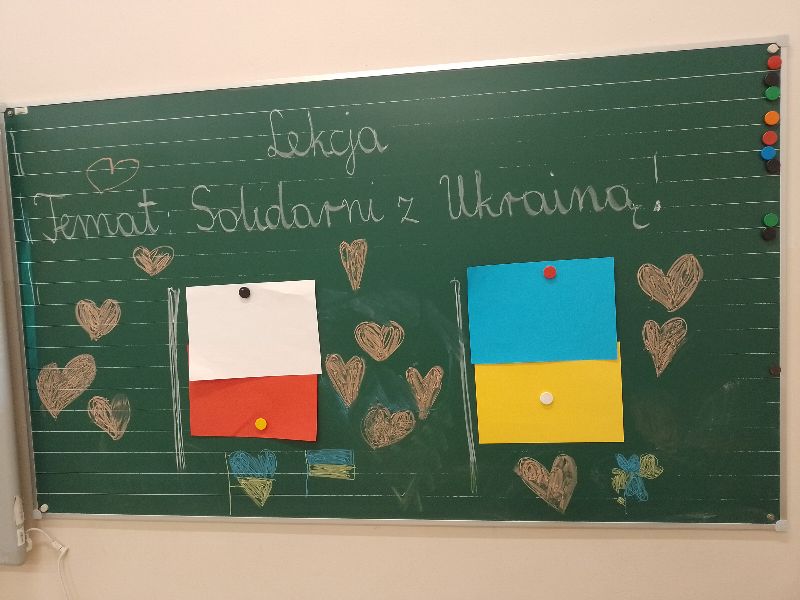 Lekcja
Temat: Solidarni z Ukrainą!